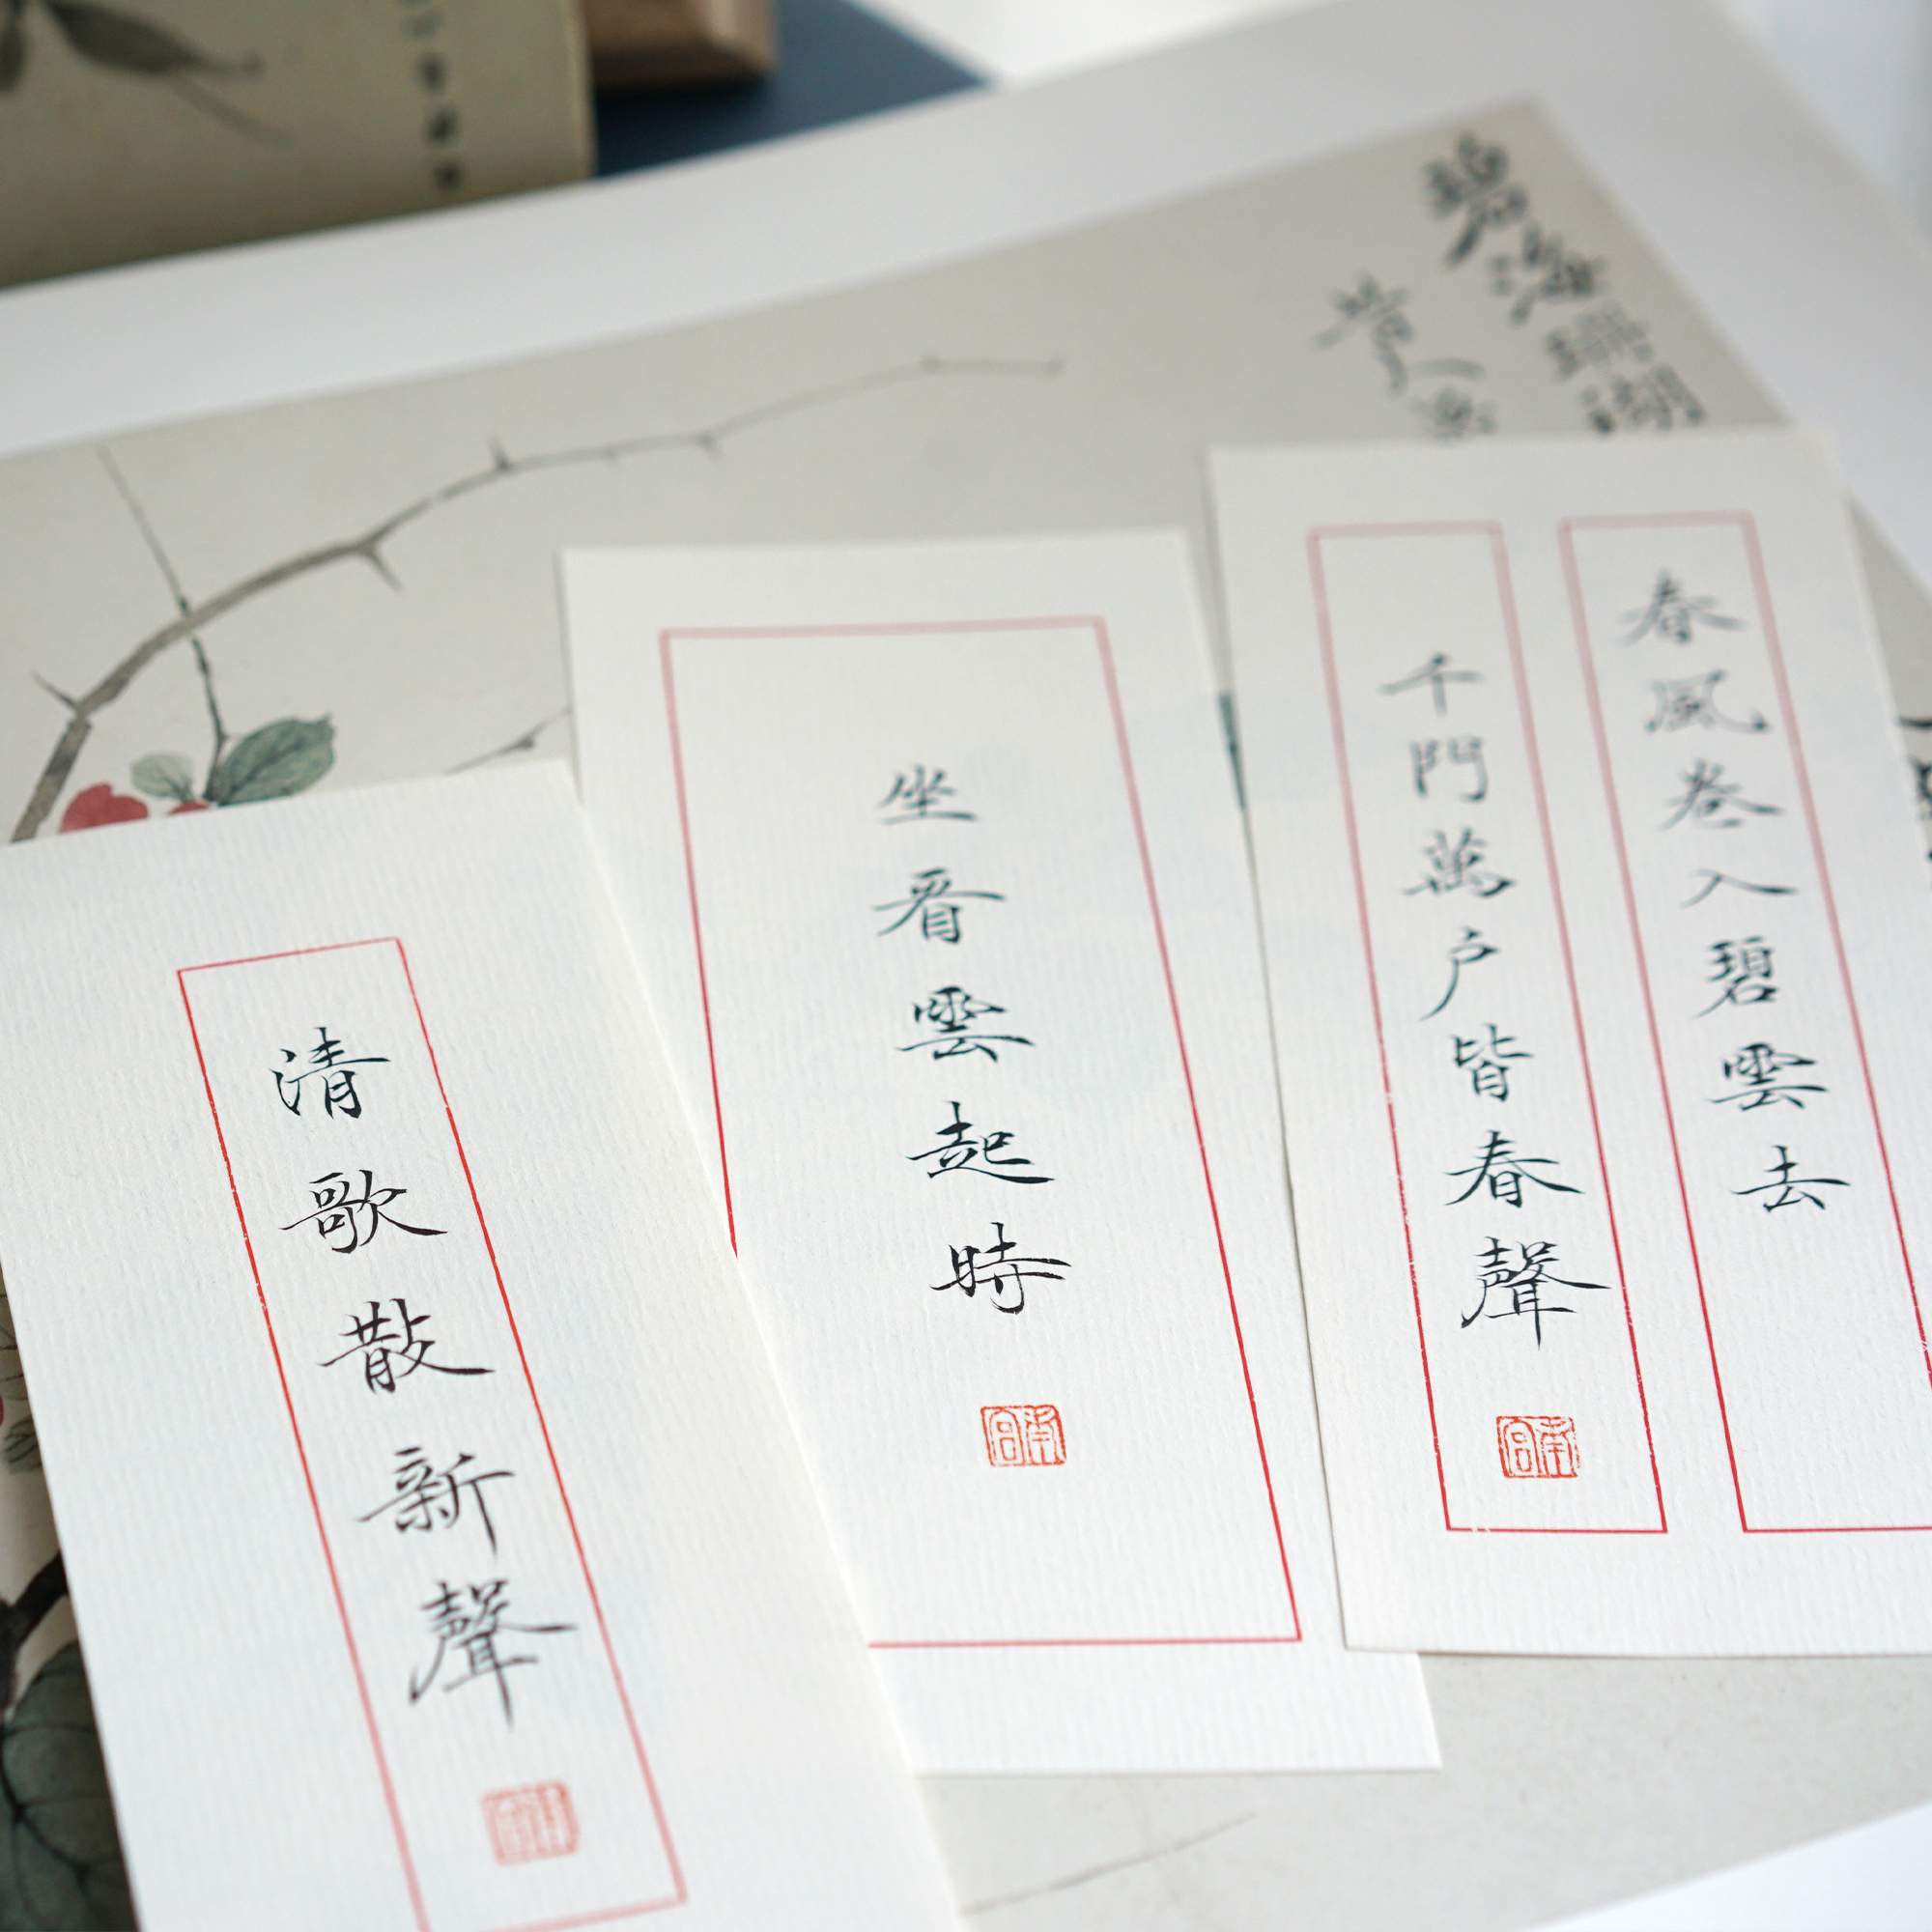 春風卷入碧雲去
千門萬户皆春聲
坐看雲起時
清歌散新聲
碧海珊瑚
昔人